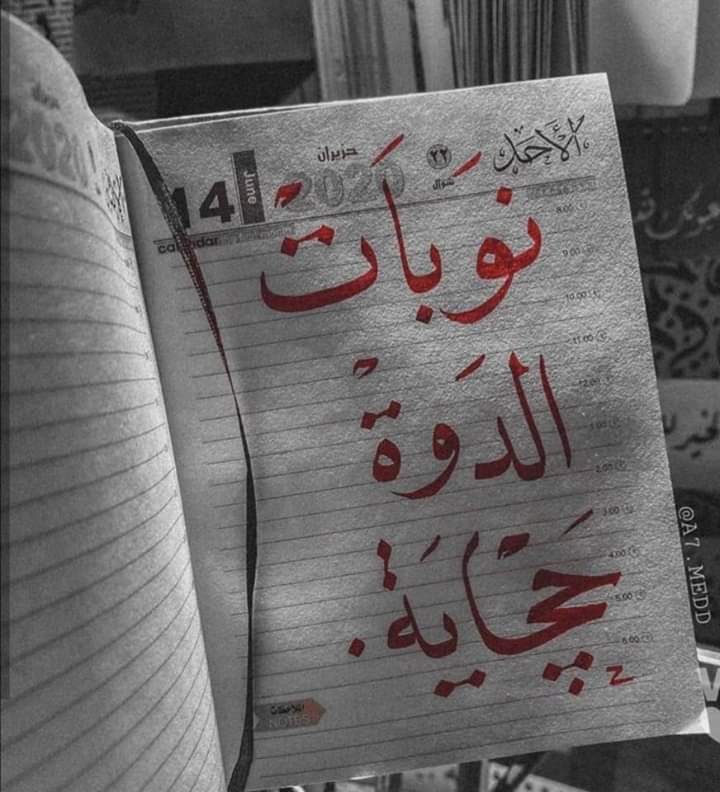 الأحد
٢٢
شوال
حزيران
2020
June
14
calendar
نَوبَاتْ
8.00
9.00
10.00
11.00
12.00
الدَوةْ
1.00
2.00
3.00
4.00
حَچْايَةْ.
5.00
6.00
الملاحظات
NOTES
@A7.MEDD
2020